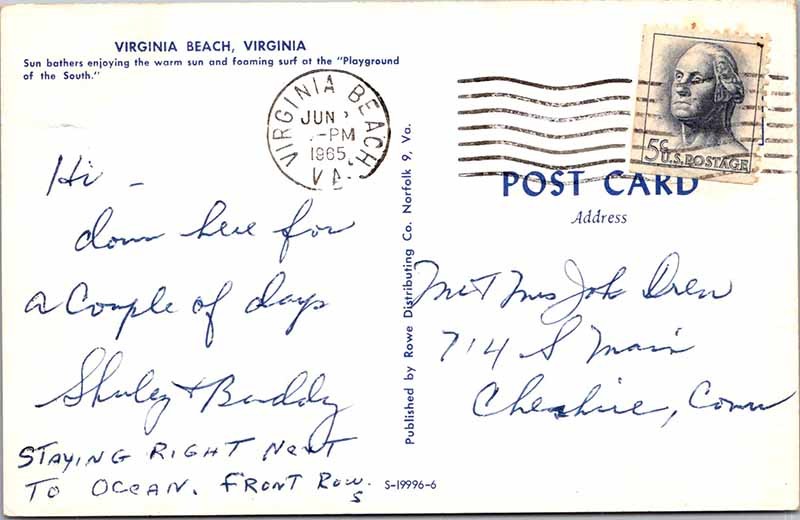 VIRGINIA BEACH, VIRGINIA
Sun bathers enjoying the warm sun and foaming surf at the "Playground
of the South."
VIRGINIA BEACH,
JUN
-PM
1965
VA.
5¢ U.S. POSTAGE
POST CARD
Address
Hi -
down here for
a Couple of days
Shirley + Buddy
STAYING RIGHT NEXT
TO OCEAN. FRONT ROW.
S
Mr + Mrs John Drew
714 S Main
Cheshire, Conn
Published by Rowe Distributing Co. Norfolk 9, Va.
S-19996-6